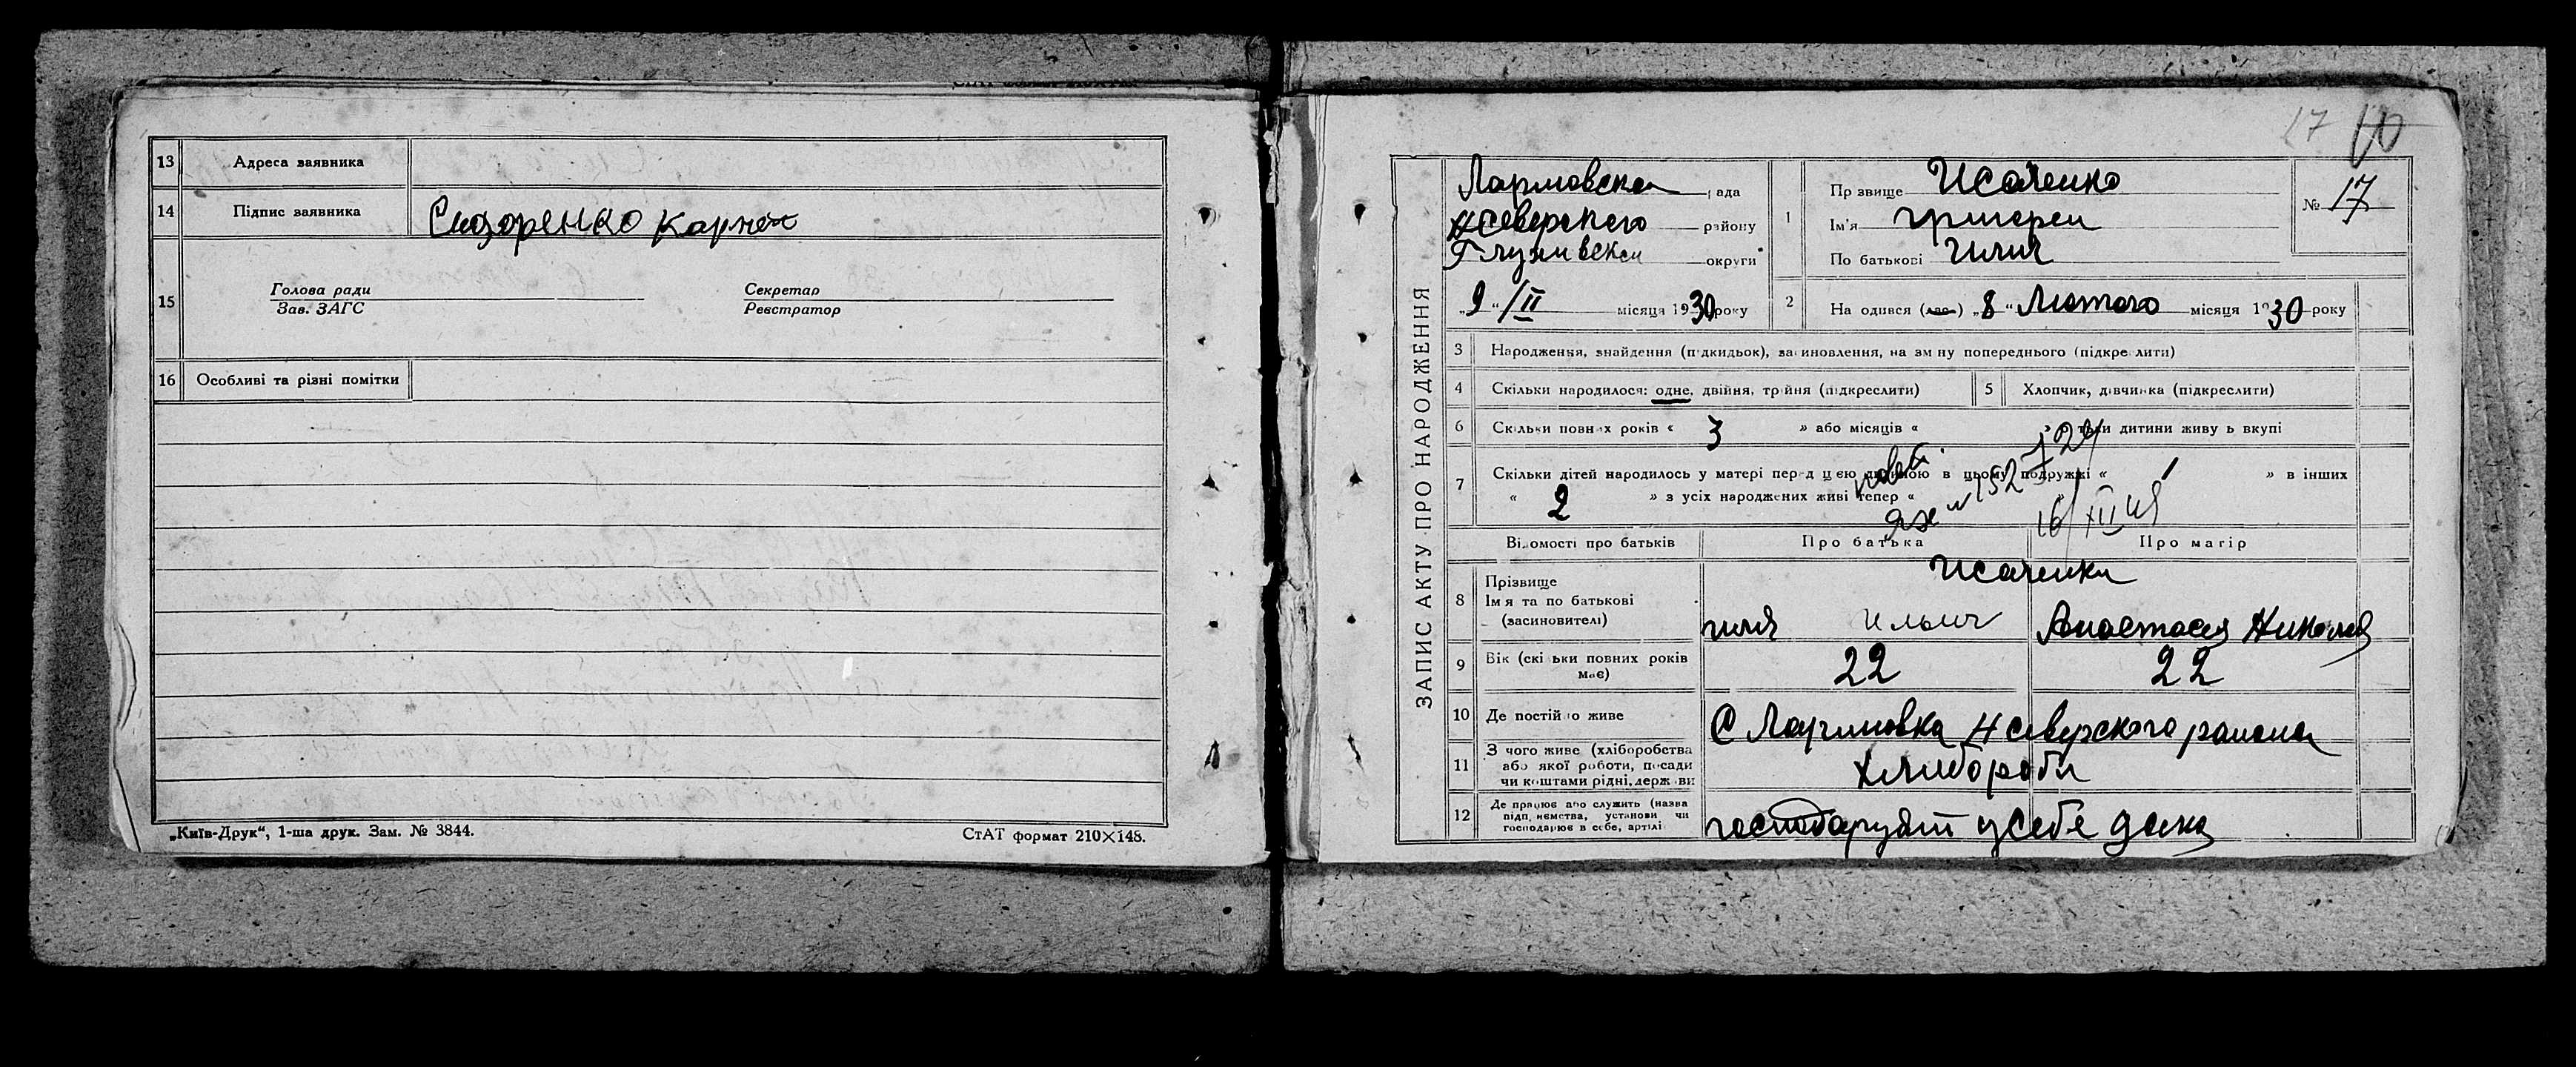 13 Адреса заявника
14 Підпис заявника Сидоренко Карней
15 Голова ради Секретар
Зав. ЗАГС Реєстратор
16 Особливі та різні помітки
„Київ-Друк“, 1-ша друк. Зам. № 3844. СтАТ формат 210×148.
17
ЗАПИС АКТУ ПРО НАРОДЖЕННЯ
рада
Нсеверского району
Глухивскои округи
„9“/II місяця 1930 року
1 Прізвище Исаченко
Ім'я Григореи
По батькові Илич
№ 17
2 Народився (лась) „8“ Лютого місяця 1930 року
3 Народження, знайдення (підкидьок), засиновлення, на зміну попереднього (підкреслити)
4 Скільки народилося: одне, двійня, трійня (підкреслити) 5 Хлопчик, дівчинка (підкреслити)
6 Скільки повних років « 3 » або місяців « » батьки дитини живуть вкупі
7 Скільки дітей народилось у матері перед цією дитиною в цьому подружжі « 1 » в інших
« 2 » з усіх народжених живі тепер « »
Відомості про батьків Про батька Про матір
8 Прізвище Исаченки
Ім'я та по батькові
(засиновителі) Илля Ильич Анастасия
9 Вік (скільки повних років має) 22 22
10 Де постійно живе С Лармовка Нсеверского раиона
11 З чого живе (хліборобства
або якої роботи, посади
чи коштами рідні, держави) хлиборобы
12 Де працює або служить (назва
підприємства, установи чи
господарює в себе, артілі) господаруют у себе дома